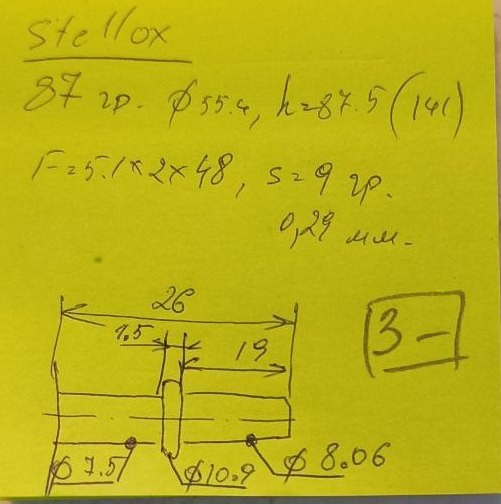 Stellox
87 гр. ϕ55.4, h=87.5 (141)
F=5.1×2×48, s=9 гр.
0,29 мм.
26
1.5
19
3-
ϕ7.5
ϕ10.9
ϕ8.06